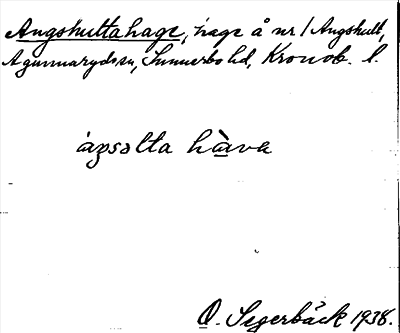 Angshultahage, hage å nr 1 Angshult,
Agunnaryds sn, Sunnerbo hd, Kronob. l.
ápsəlta hàva
O. Segerbäck 1938.